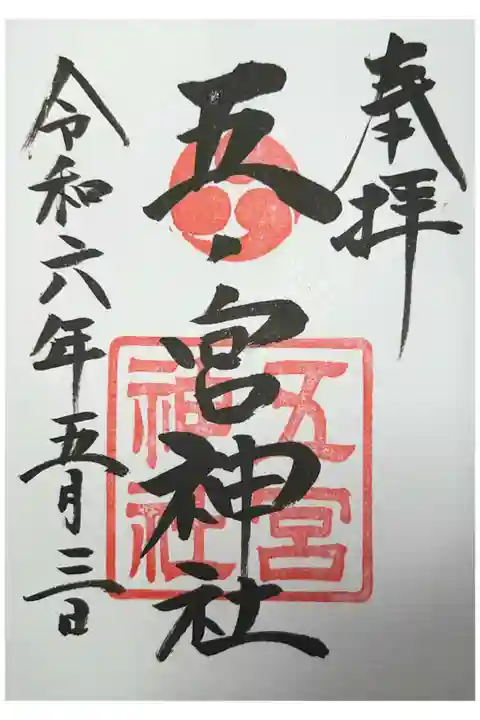 奉拝
五ノ宮神社
五宮
神社
令和六年五月三日